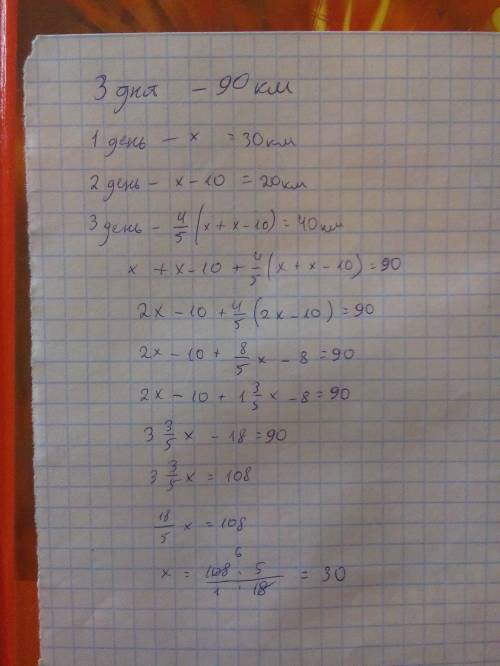 3 дня - 90 км
1 день - x = 30 км
2 день - x - 10 = 20 км
3 день - 4/5 (x + x - 10) = 40 км
x + x - 10 + 4/5 (x + x - 10) = 90
2x - 10 + 4/5 (2x - 10) = 90
2x - 10 + 8/5 x - 8 = 90
2x - 10 + 1 3/5 x - 8 = 90
3 3/5 x - 18 = 90
3 3/5 x = 108
18/5 x = 108
6
x = 108 · 5 / 1 · 18 = 30